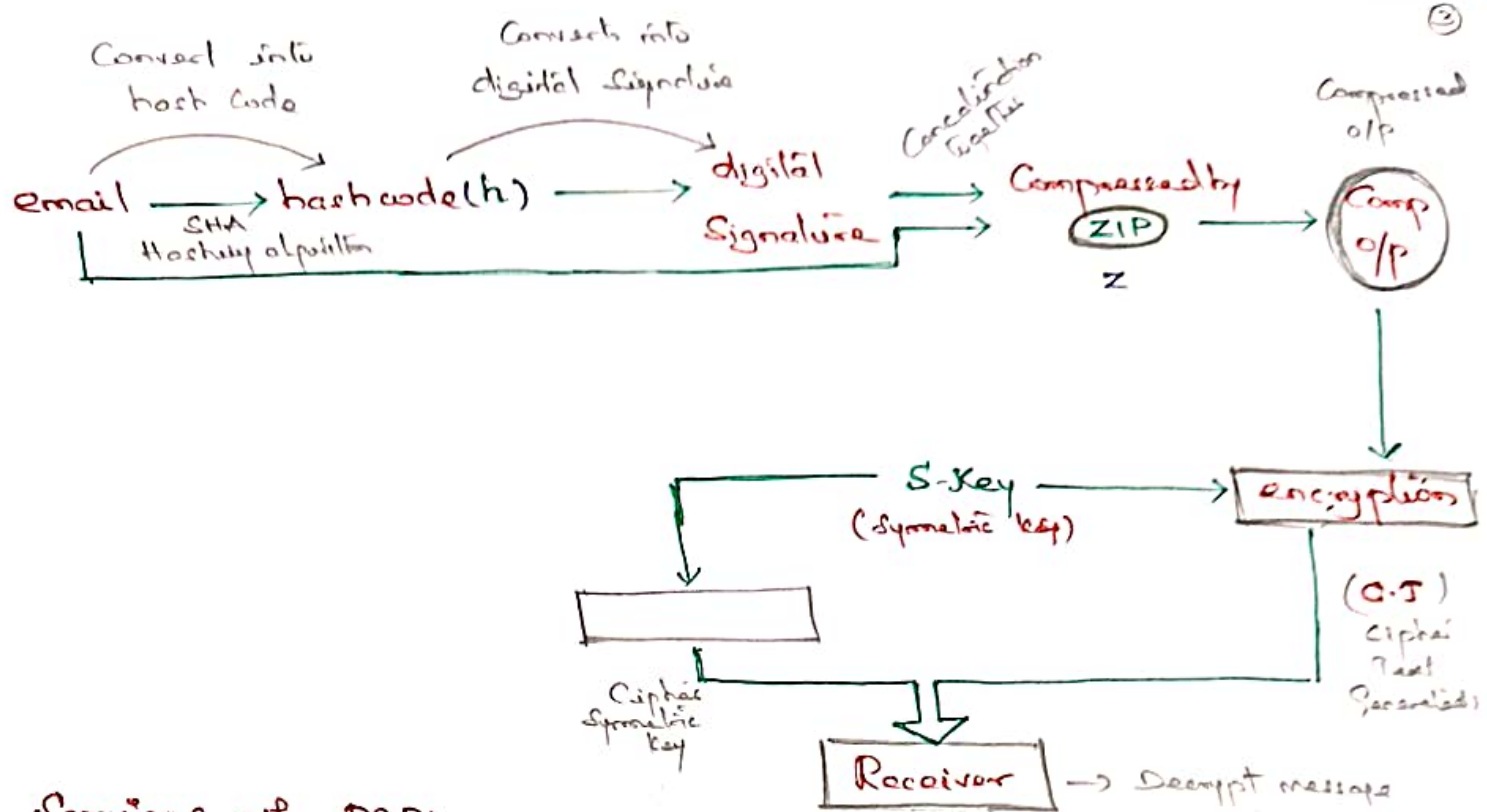 ③
Convert into
hash Code
Converts into
digital Signature
together
Compressed
o/p
email
hashcode(h)
SHA
Hashing algorithm
digital
Signature
Compressed by
ZIP
Z
Comp
O/p
S-Key
(Symmetric key)
encryption
(C.T)
Cipher
Text
Generated
Cipher
Symmetric
key
Receiver
→ Decrypt message